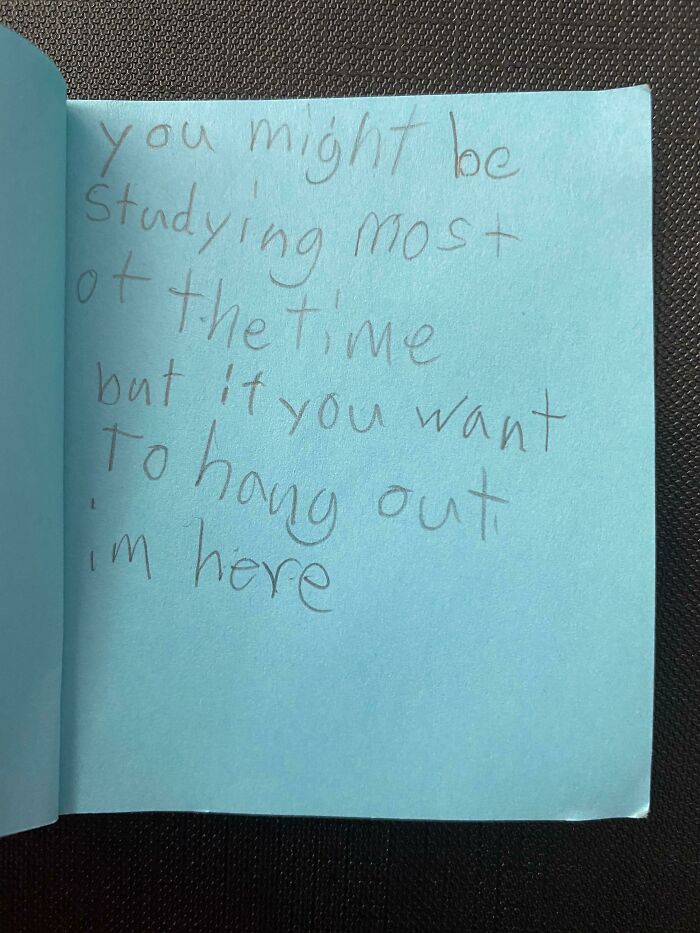 you might be
studying most
of the time
but if you want
to hang out
im here